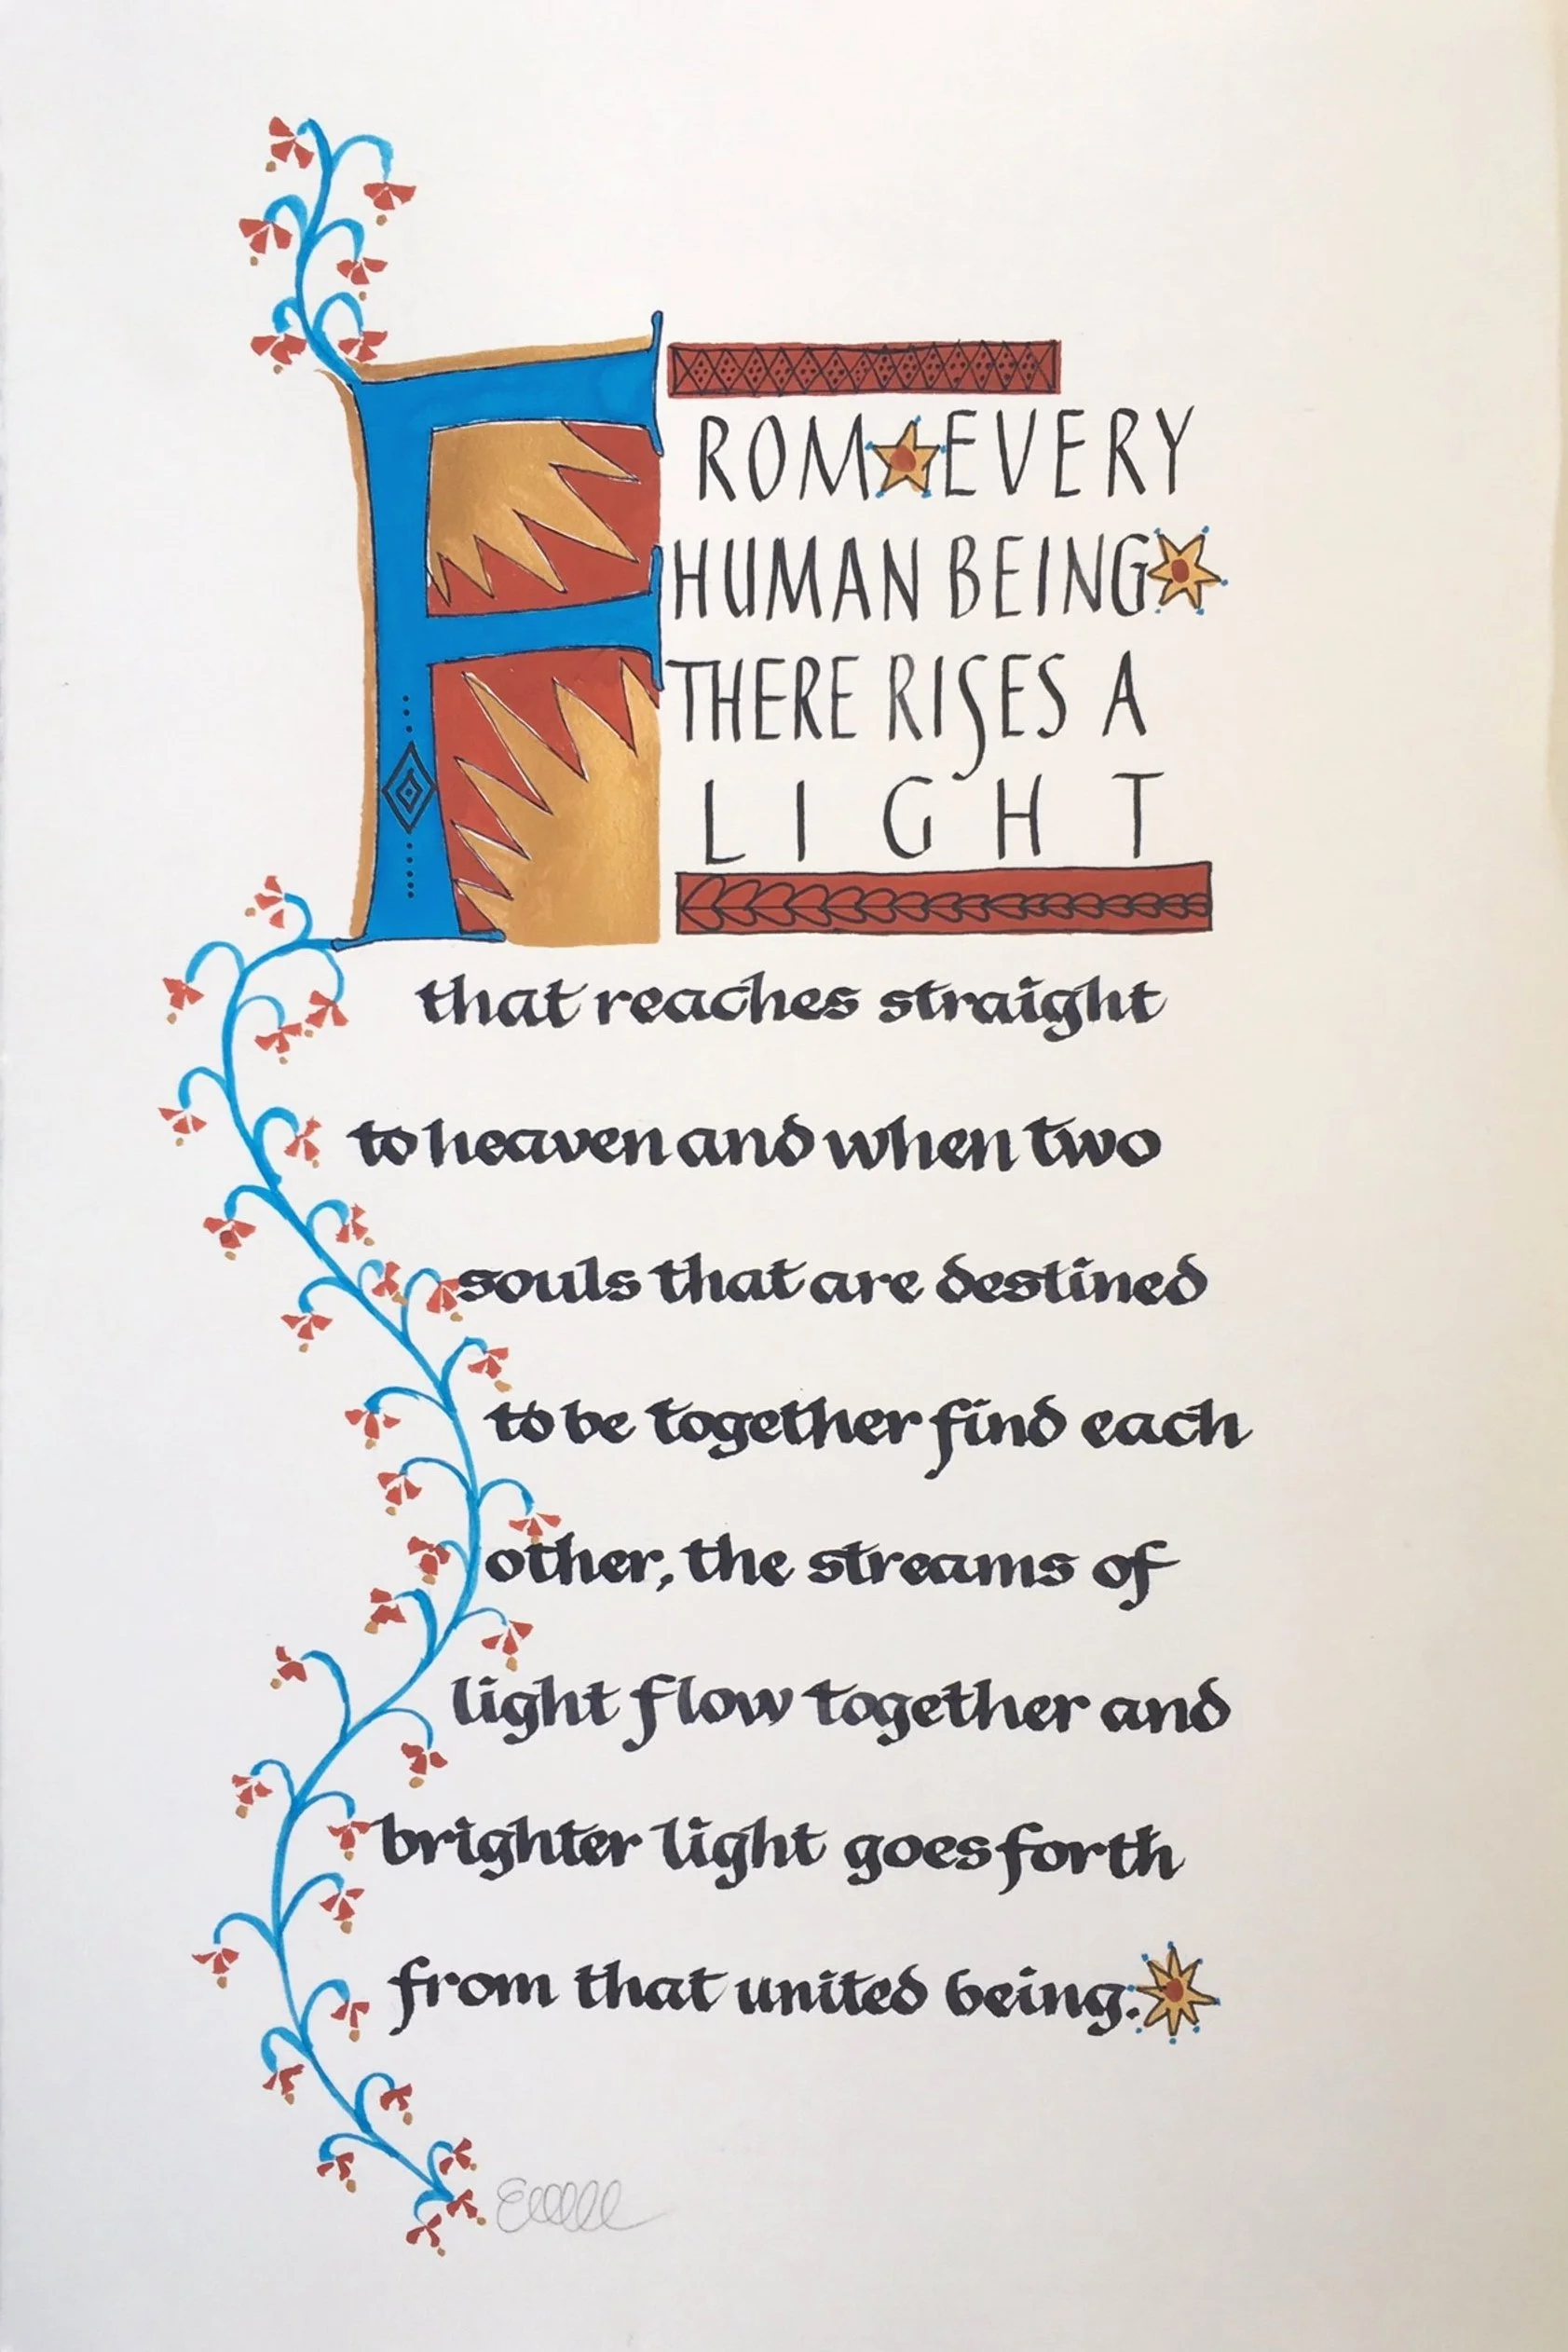 FROM EVERY
HUMAN BEING
THERE RISES A
LIGHT
that reaches straight
to heaven and when two
souls that are destined
to be together find each
other, the streams of
light flow together and
brighter light goes forth
from that united being.